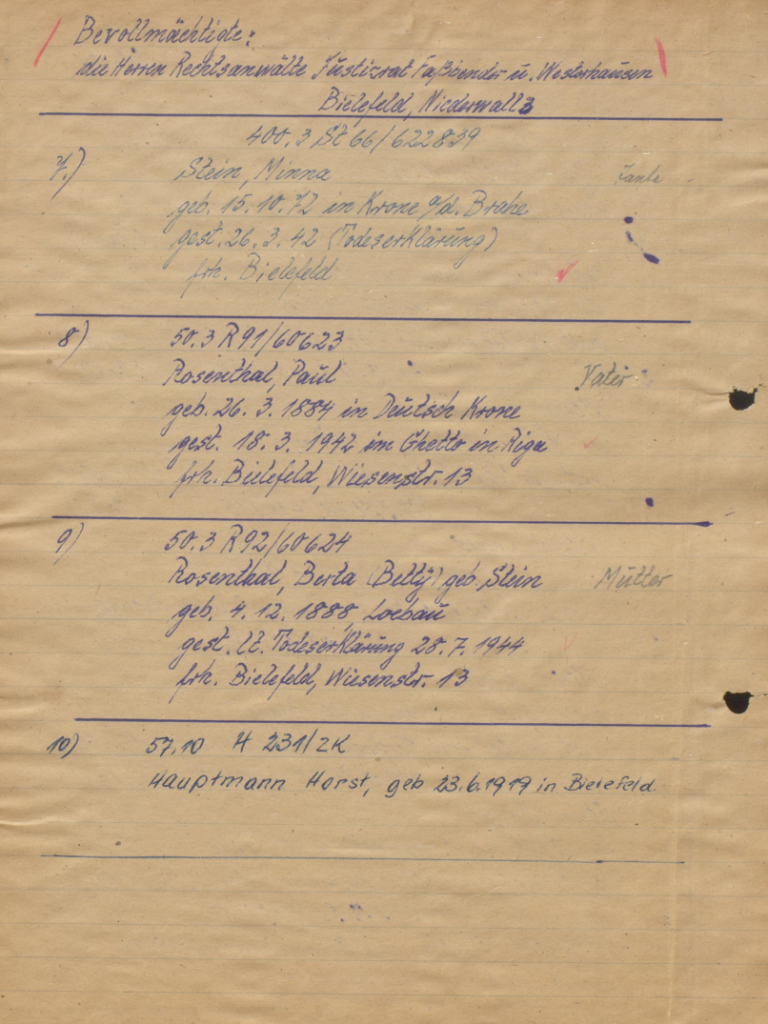 Bevollmächtigte:
die Herren Rechtsanwälte Justizrat Faßbender u. Westerhausen
Bielefeld, Niederwall 3
400.3 St 66/622839
7.) Stein, Minna Tante
geb. 15.10.72 in Krone a/d. Brahe
gest. 26.3.42 (Todeserklärung)
frh. Bielefeld
8) 50.3 R91/60623
Rosenthal, Paul Vater
geb. 26.3.1884 in Deutsch Krone
gest. 18.3.1942 im Ghetto in Riga
frh. Bielefeld, Wiesenstr. 13
9) 50.3 R92/60624
Rosenthal, Berta (Betty) geb. Stein Mutter
geb. 4.12.1888, Loebau
gest. lt. Todeserklärung 28.7.1944
frh. Bielefeld, Wiesenstr. 13
10) 57.10 H 231/ZK
Hauptmann Horst, geb 23.6.1919 in Bielefeld.